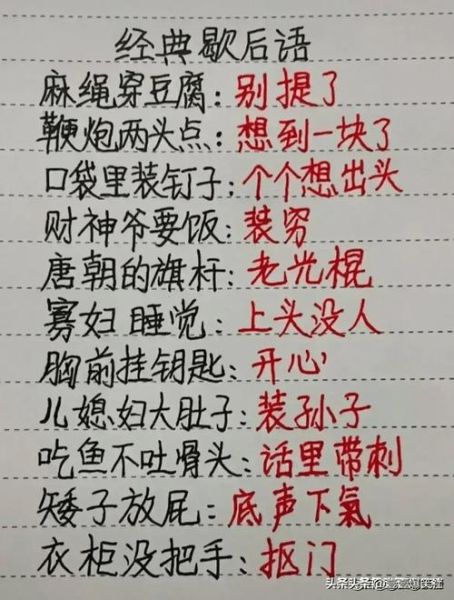 经典歇后语
麻绳穿豆腐：别提了
鞭炮两头点：想到一块了
口袋里装钉子：个个想出头
财神爷要饭：装穷
唐朝的旗杆：老光棍
寡妇睡觉：上头没人
胸前挂钥匙：开心
儿媳妇大肚子：装孙子
吃鱼不吐骨头：话里带刺
矮子放屁：底声下氣
衣柜没把手：抠门
头条头条